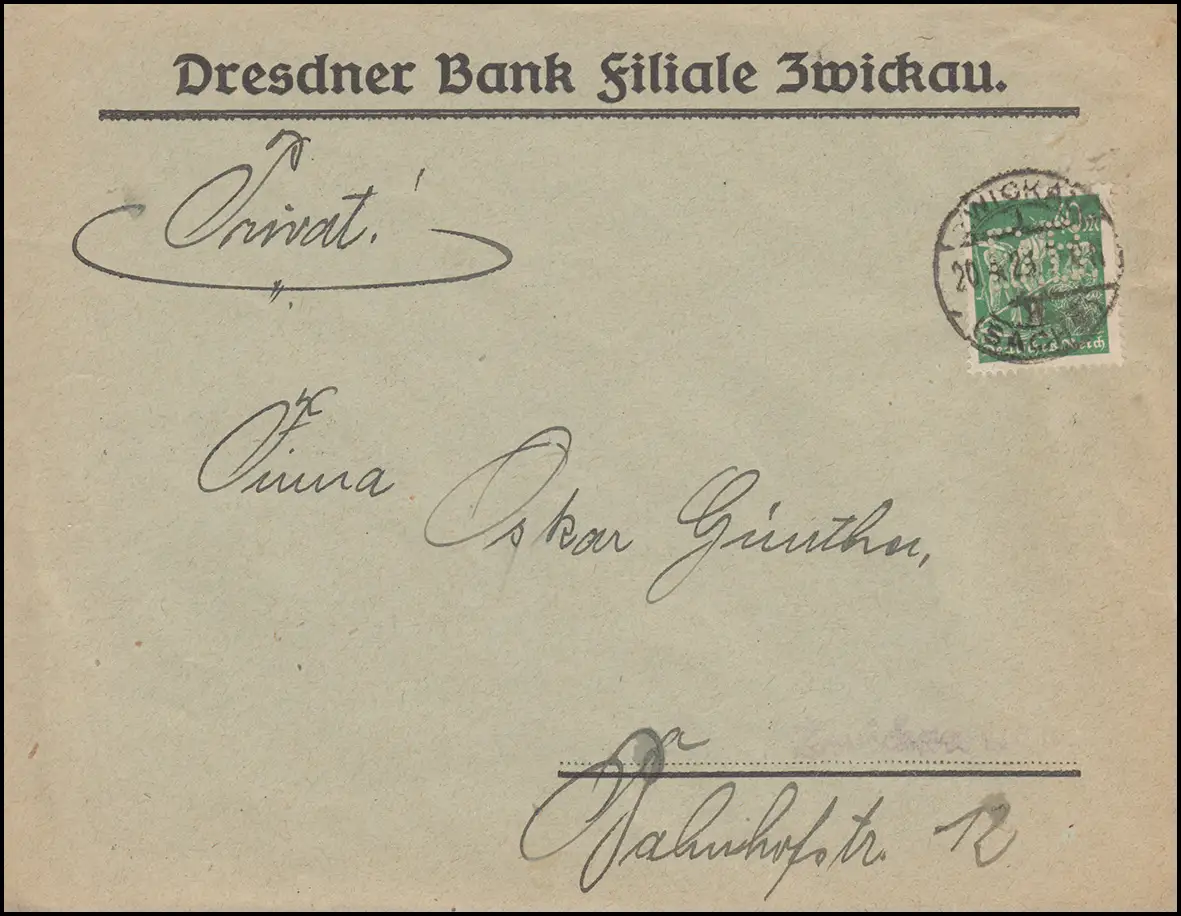 Dresdner Bank Filiale Zwickau.
Privat!
ZWICKAU
40 M
20.
23.
(SACHS)
Deutsches Reich
Firma
Oskar Günther,
Zwickau
Bahnhofstr. 12